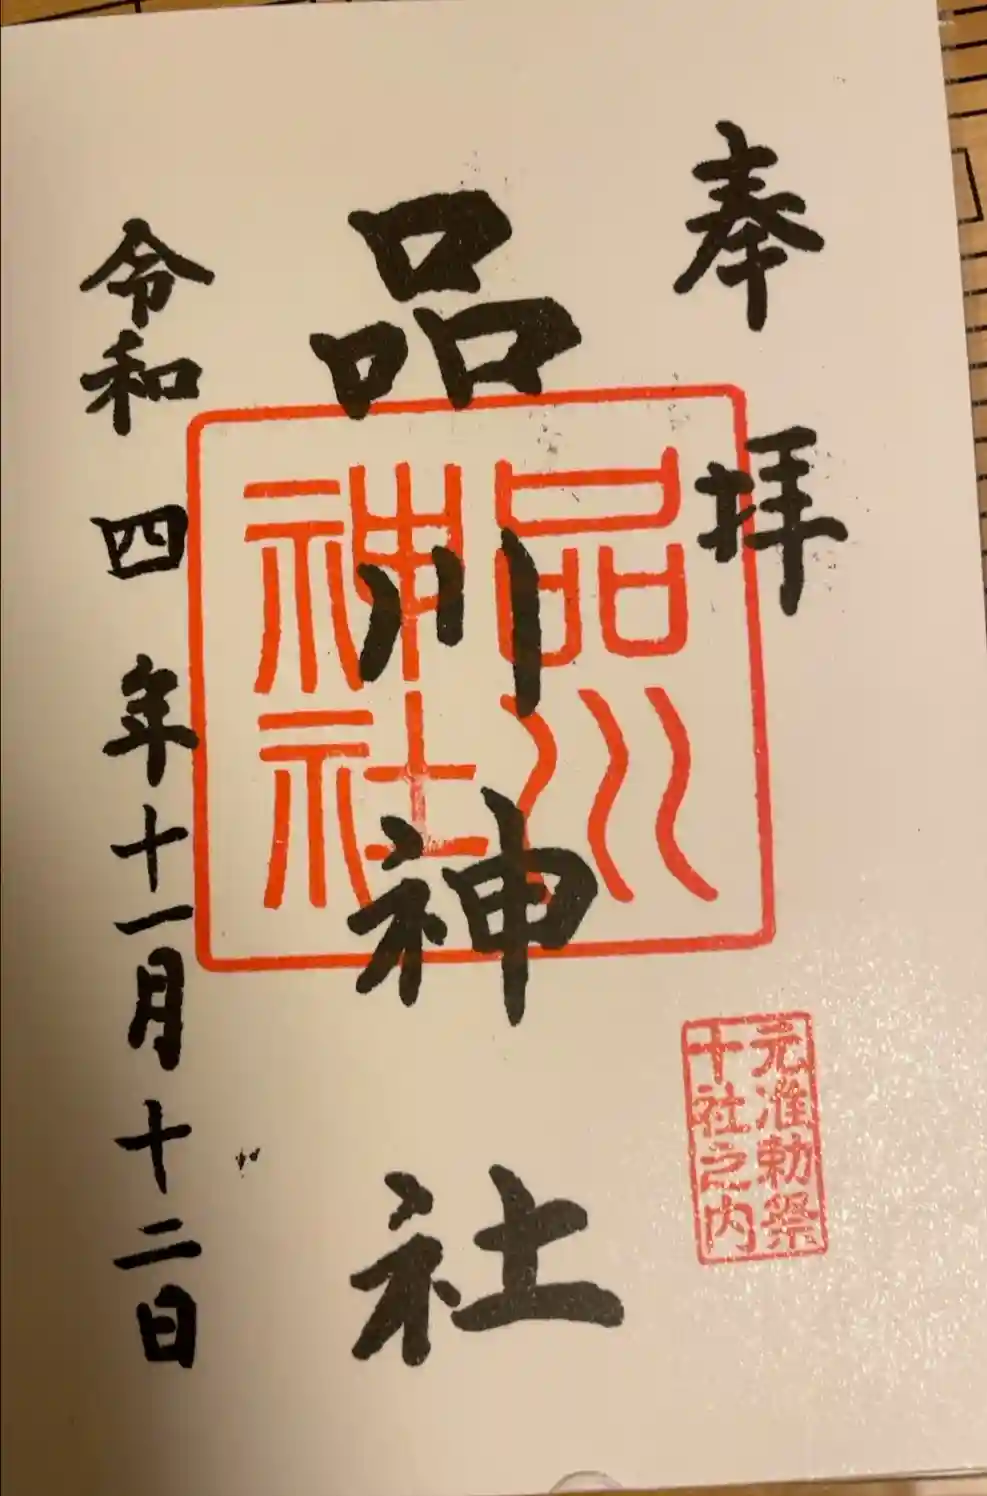 奉拝
品川神社
品川
神社
元准勅祭
十社之内
令和四年十一月十二日